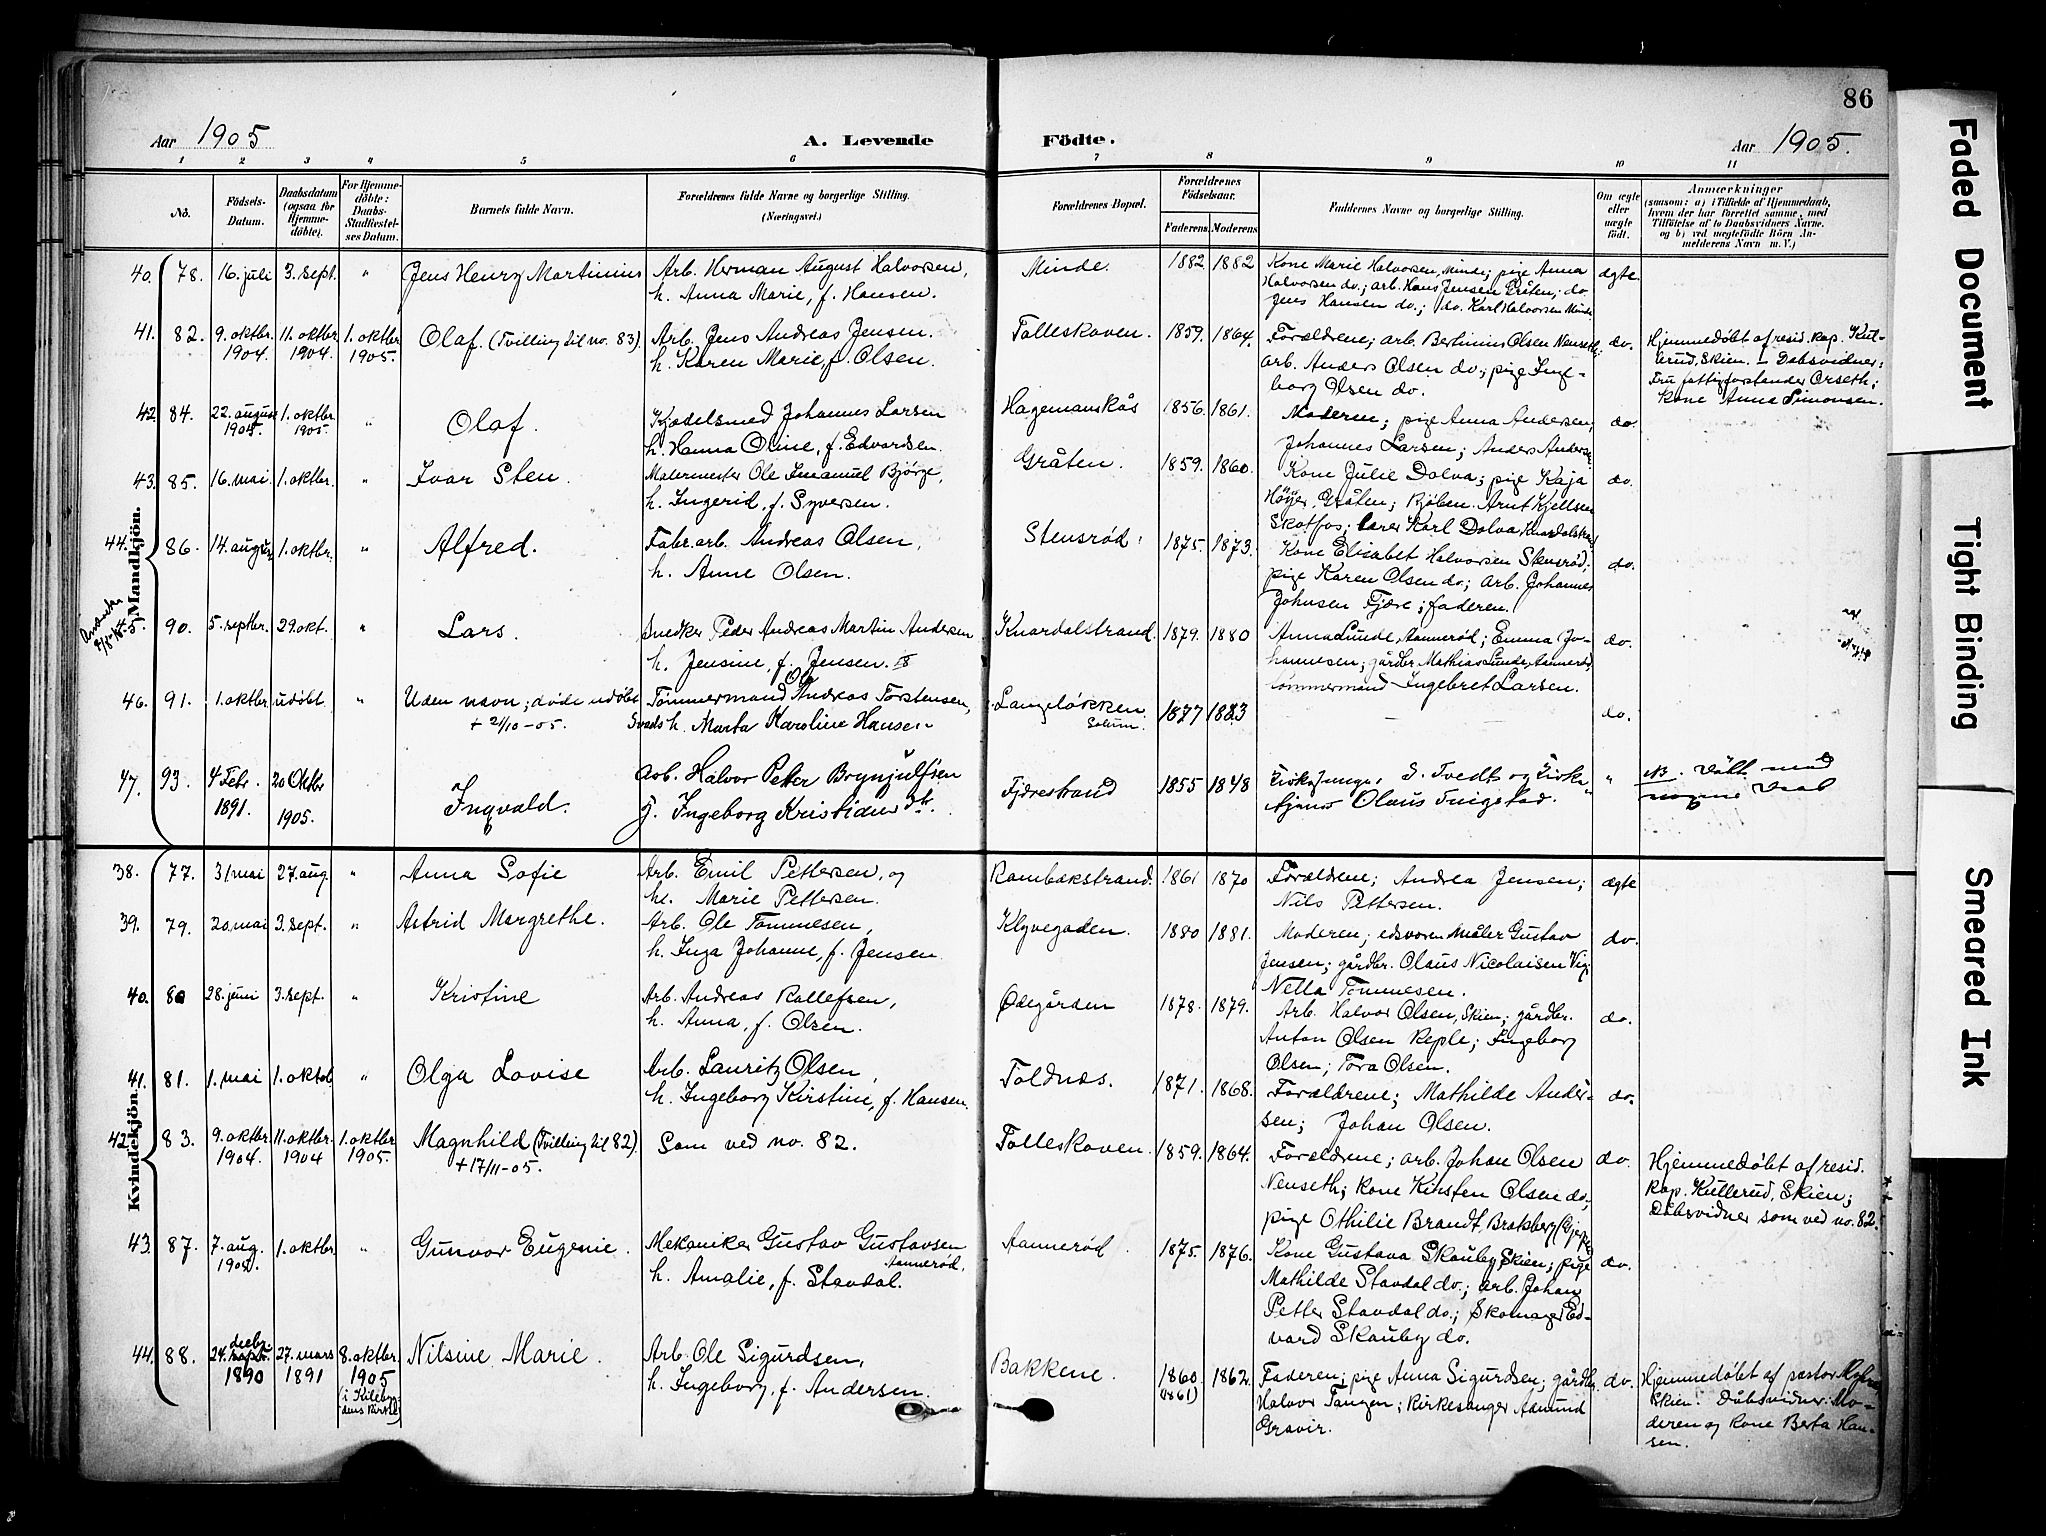 86
Aar 1905
A. Levende Födte.
Aar 1905.
1 2 3 4 5 6 7 8 9 10 11
No.
Födsels-
Datum.
Daabsdatum
(ogsaa for
Hjemme-
döbte).
For Hjemme-
döbte:
Daabs-
Stadfæstel-
ses Datum.
Barnets fulde Navn.
Forældrenes fulde Navne og borgerlige Stilling.
(Næringsvei.)
Forældrenes Bopæl.
Forældrenes
Födselsaar.
Faderens. Moderens.
Faddernes Navne og borgerlige Stilling.
Om ægte
eller
uægte
födt.
Anmærkninger
(saasom: a) i Tilfælde af Hjemmedaab,
hvem der har forrettet samme, med
Tilföielse af to Daabsvidners Navne,
og b) ved uægtefödte Börn An-
melderens Navn m. V.)
Mandkjön.
40. 78. 16. juli 3. sept. " Jens Henry Martinius Arb. Herman August Halvorsen,
h. Anna Marie, f. Hansen.
Minde. 1882 1882 Kone Marie Halvorsen, Minde; pige Anna
Halvorsen do.; arb. Hans Jensen Gråten; do.
Jens Hansen do.; do. Karl Halvorsen Minde
ægte.
41. 82. 9. oktbr. 1904. 11. oktbr. 1904. 1. oktbr. 1905. Olaf. (Tvilling til no. 83). Arb. Jens Andreas Jensen.
h. Karen Marie, f. Olsen.
Folleskoven. 1859. 1864. Forældrene; arb. Bertinius Olsen Nenseth;
arb. Anders Olsen do; pige Inge-
borg Olsen do.
do. Hjemmedøbt af resid. kap. Kul-
lerud, Skien. - Dåbsvidner:
Fru fattigforstander Orseth;
Kone Anna Simonsen.
42. 84. 22. august 1905. 1. oktbr. 1905. " Olaf. Kjedelsmed Johannes Larsen
h. Hanna Oline, f. Edvardsen.
Hagemanskås 1856. 1861. Moderen; pige Anna Andersen,
Johannes Larsen; Anders Anders
do.
43. 85. 16. mai. 1. oktbr. " Ivar Sten. Malermester Ole Imanuel Bjørge,
h. Ingerid, f. Syversen.
Gråten. 1859. 1860. Kone Julie Dolva; pige Kaja
Høyer, Gråten; Kjøbm. Arnt Kjellsen
Skotfos; lærer Karl Dolva Knardalstra
do.
44. 86. 14. august 1. oktbr. " Alfred. Fabr. arb. Andreas Olsen,
h. Anne Olsen.
Stensrød. 1875. 1873. Kone Elisabet Halvorsen Stensrød;
pige Karen Olsen do; arb. Johannes
Johnsen Fjære; faderen.
do.
45. 90. 5. septbr. 29. okt. " Lars. Snedker Peder Andreas Martin Andersen
h. Jensine, f. Jensen.
Knardalstrand. 1879. 1880 Anna Lunde, Aannerød; Emma Jo-
hannesen; gårdbr. Mathias Lunde, Aannerød,
tømmermand Ingebret Larsen.
do.
46. 91. 1. oktbr. udøbt " Uden navn; døde udøbt
+ 21/10 - 05.
Tømmermand Ole Andreas Torstensen,
h. Marta Karoline Hansen
Langeløkken
Solum. 1877 1883 do.
47. 93. 4 Febr. 1891. 20 Oktbr 1905. Ingvald. Arb. Halvor Peter Brynjulfsen
g. Ingeborg Kristians dtr.
Fjærestrand 1855 1848 Kirkesanger S. Tvedt og Kirke-
tjener Olaus "
NB. Døbt med
Kvindekjön.
38. 77. 31 mai 27. aug. " Anna Sofie Arb. Emil Pettersen, og
h. Marie Pettersen.
Rambækstrand. 1861 1870 Forældrene; Andrea Jensen;
Nils Pettersen.
ægte
39. 79. 20. mai 3. sept. " Astrid Margrethe. Arb. Ole Tommesen,
h. Inga Johanne, f. Jensen
Klyvegaden. 1880 1881. Moderen; edsvoren måler Gustav
Jensen; gårdbr. Olaus Nicolaisen Vig;
Nella Tommesen.
do.
40. 80 28. juni 3. sept. " Kristine Arb. Andreas Rollefsen,
h. Anna, f. Olsen.
Ødegården 1878. 1879. Arb. Halvor Olsen, Skien; gårdbr.
Anton Olsen Reple; Ingeborg
Olsen; Tora Olsen.
do.
41. 81. 1. mai 1. oktob " Olga Lovise Arb. Lauritz Olsen,
h. Ingeborg Kirstine, f. Hansen.
Toldnæs. 1871. 1868. Forældrene; Mathilde Ander-
sen; Johan Olsen.
do.
42. 83. 9. oktbr. 1904. 11. oktbr. 1904 1. oktbr. 1905. Magnhild (Tvilling til 82).
+ 17/11 - 05.
Som ved no. 82.
Folleskoven. 1859. 1864. Forældrene; arb. Johan Olsen
Nenseth; kone Kirsten Olsen do;
pige Othilie Brandt, Brakberg, Gjerp
do. Hjemmedøbt af resid.
kap. Kullerud, Skien;
Dåbsvidner som ved no. 82.
43. 87. 7. aug. 1905. 1. oktbr. " Gunvor Eugenie. Mekaniker Gustav Gustavsen
Aannerød.
h. Amalie, f. Stavdal.
Aannerød. 1875. 1876. Kone Gustava Skauby, Skien; pige
Mathilde Stavdal do.; arb. Johan
Petter Stavdal do.; Skomager Ed-
vard Skauby do.
do.
44. 88. 24. decbr. 1890 27. mars 1891 8. oktbr. 1905
(i Kilebyg-
dens kirke)
Nilsine Marie. Arb. Ole Sigurdsen,
h. Ingeborg, f. Andersen.
Bakkene. 1860. (1861) 1862. Faderen; pige Anna Sigurdsen; gårdbr.
Halvor Tangen; kirkesanger Aamund
Gravir.
do. Hjemmedøbt af pastor
Skien. Dåbsvidner: Mo-
deren og kone Berta Han-
sen.
Faded Document
Tight Binding
Smeared Ink